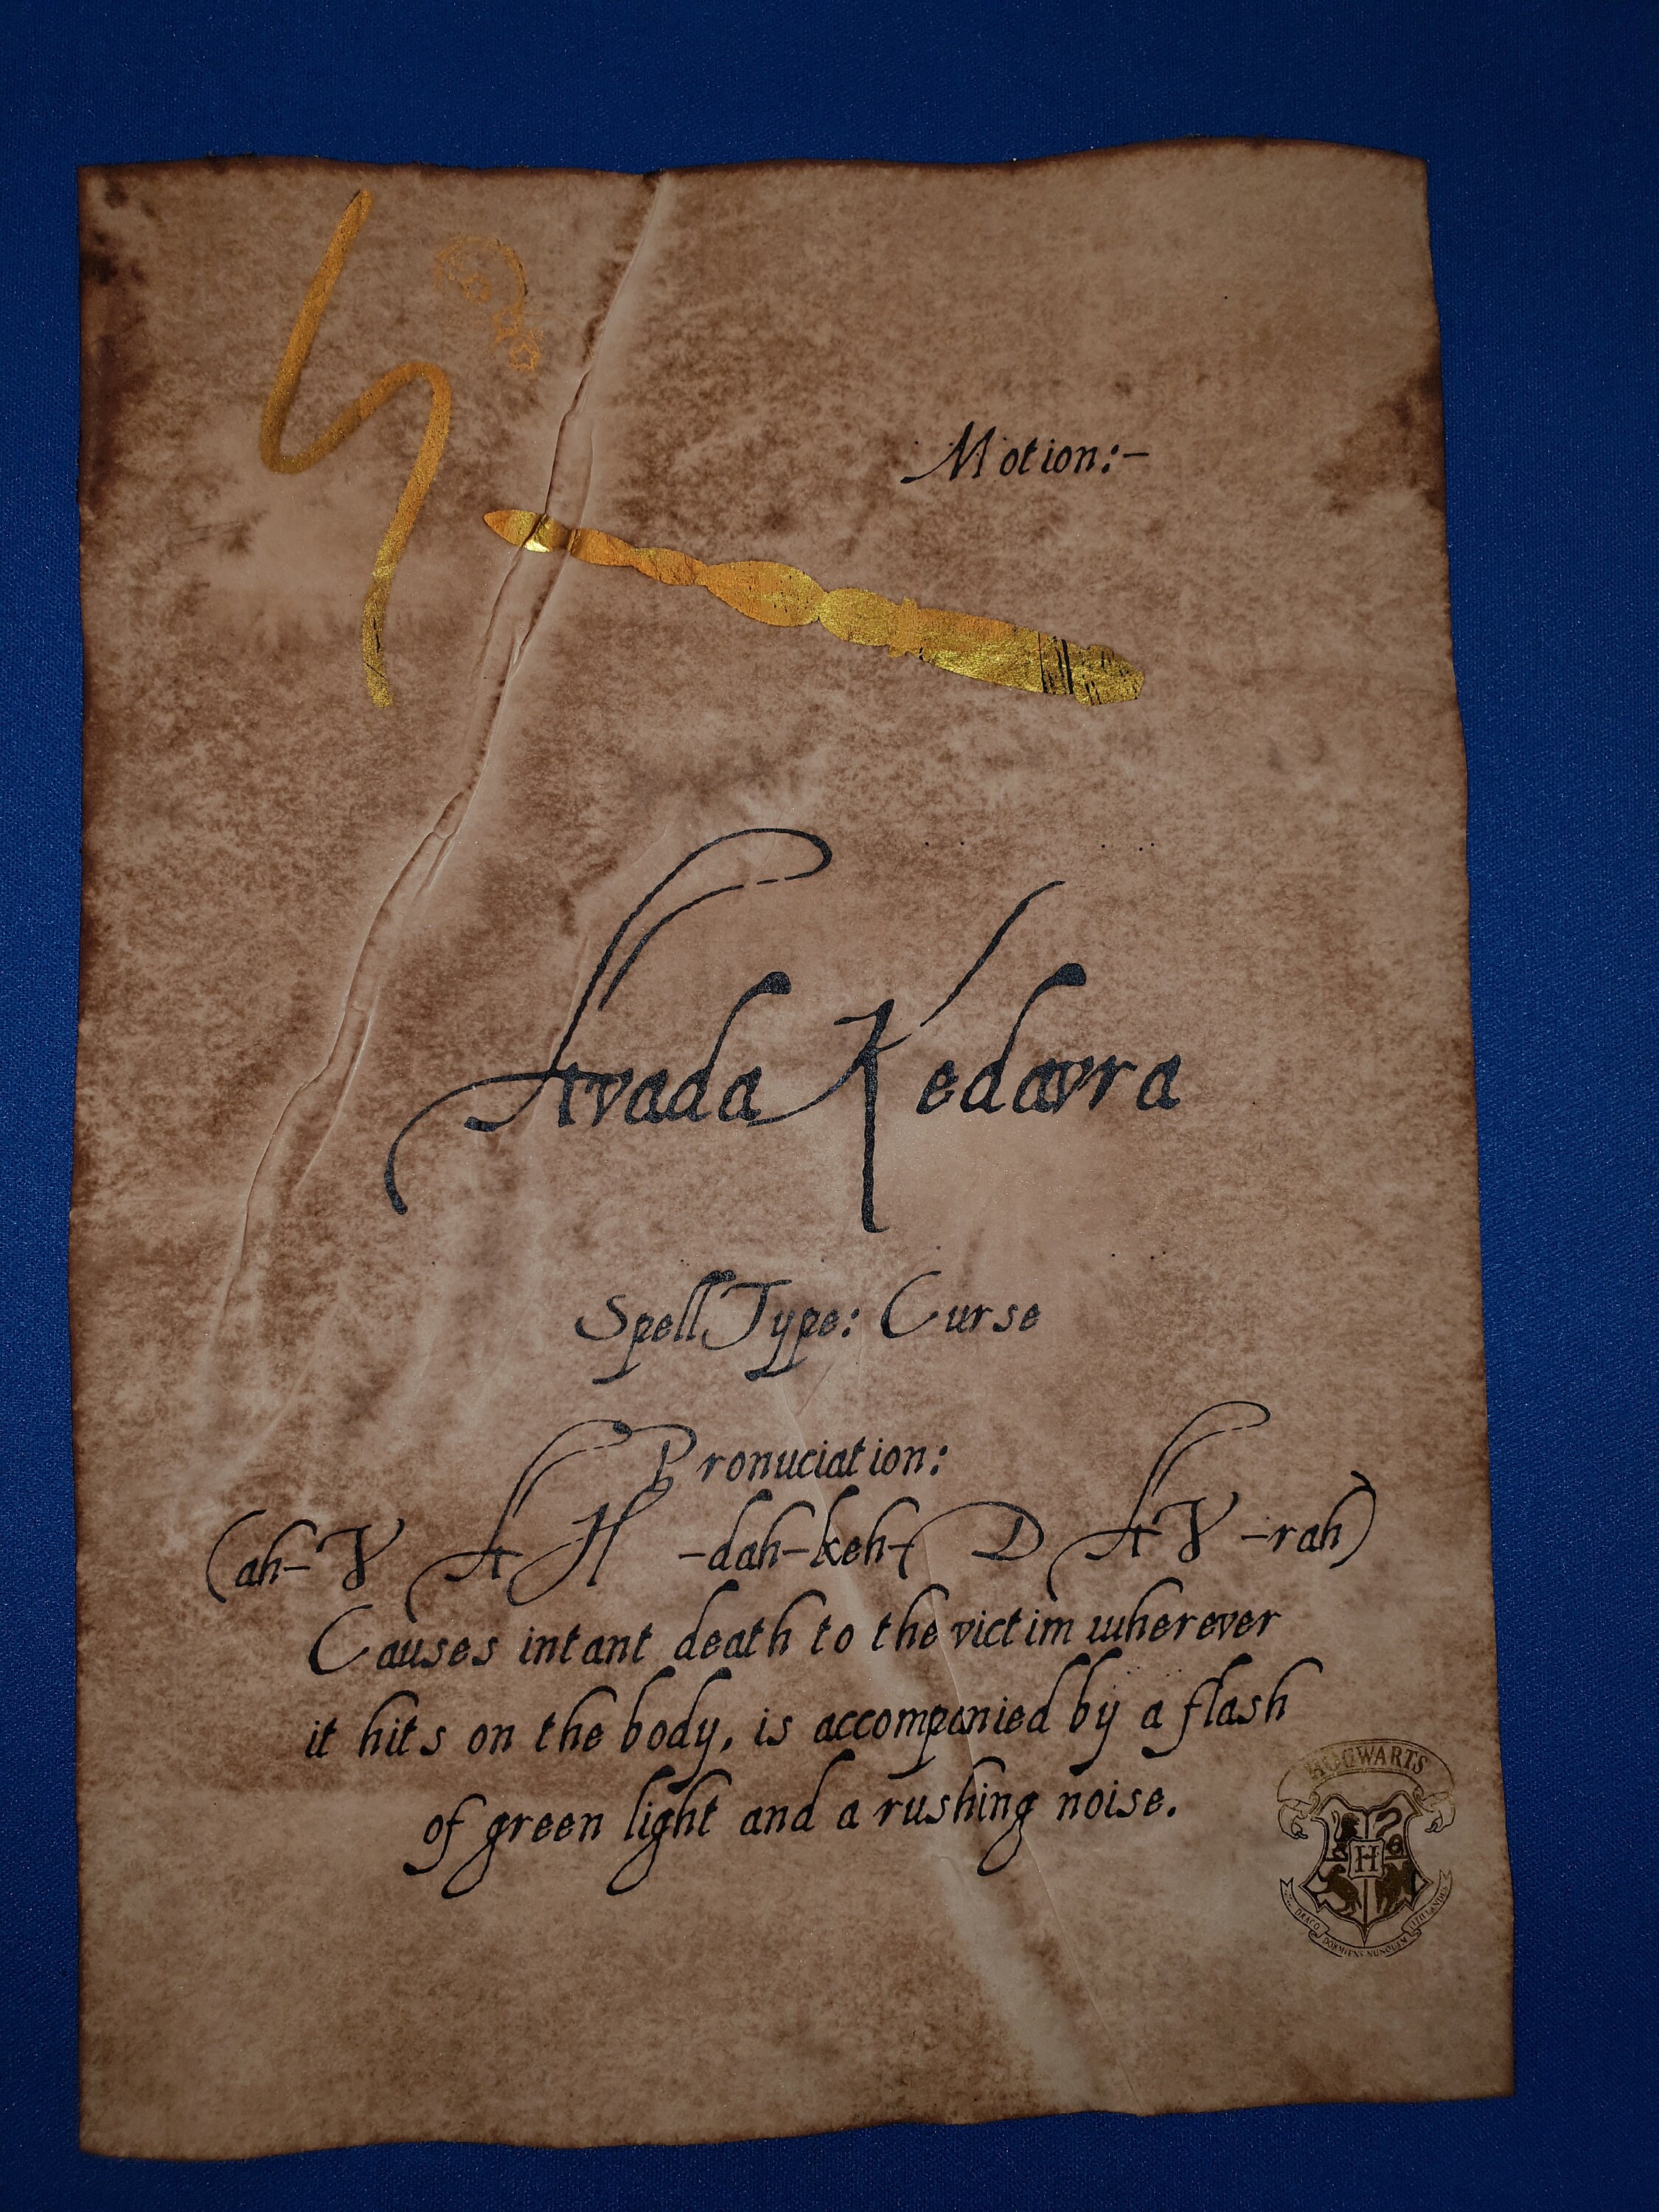 Motion:-
Avada Kedavra
Spell Type: Curse
Pronuciation:
(ah-VAH-dah-keh-DAV-rah)
Causes intant death to the victim wherever
it hits on the body, is accompanied by a flash
of green light and a rushing noise.
HOGWARTS
H
DRACO DORMIENS NUNQUAM TITILLANDUS